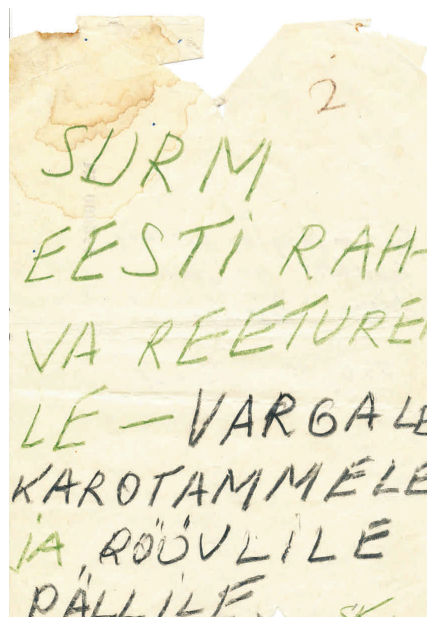 2
SURM
EESTI RAH-
VA REETURE
LE — VARGALE
KAROTAMMELE
JA RÖÖVLILE
PÄLLILE.
SK.